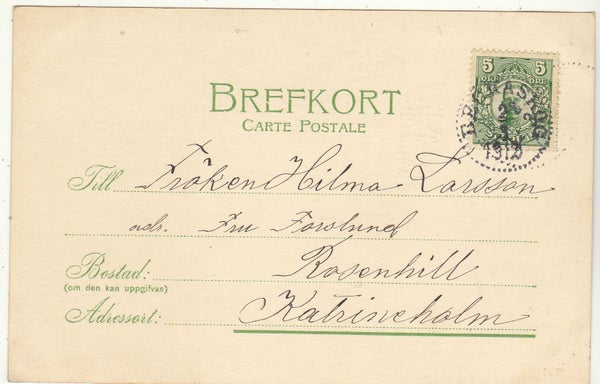 5 5
ÖRE ÖRE
BREFKORT
CARTE POSTALE
1912
Till Fröken Hilma Larsson
adr. Fru Forslund
Bostad: Rosenhill
(om den kan uppgifvas)
Adressort: Katrineholm